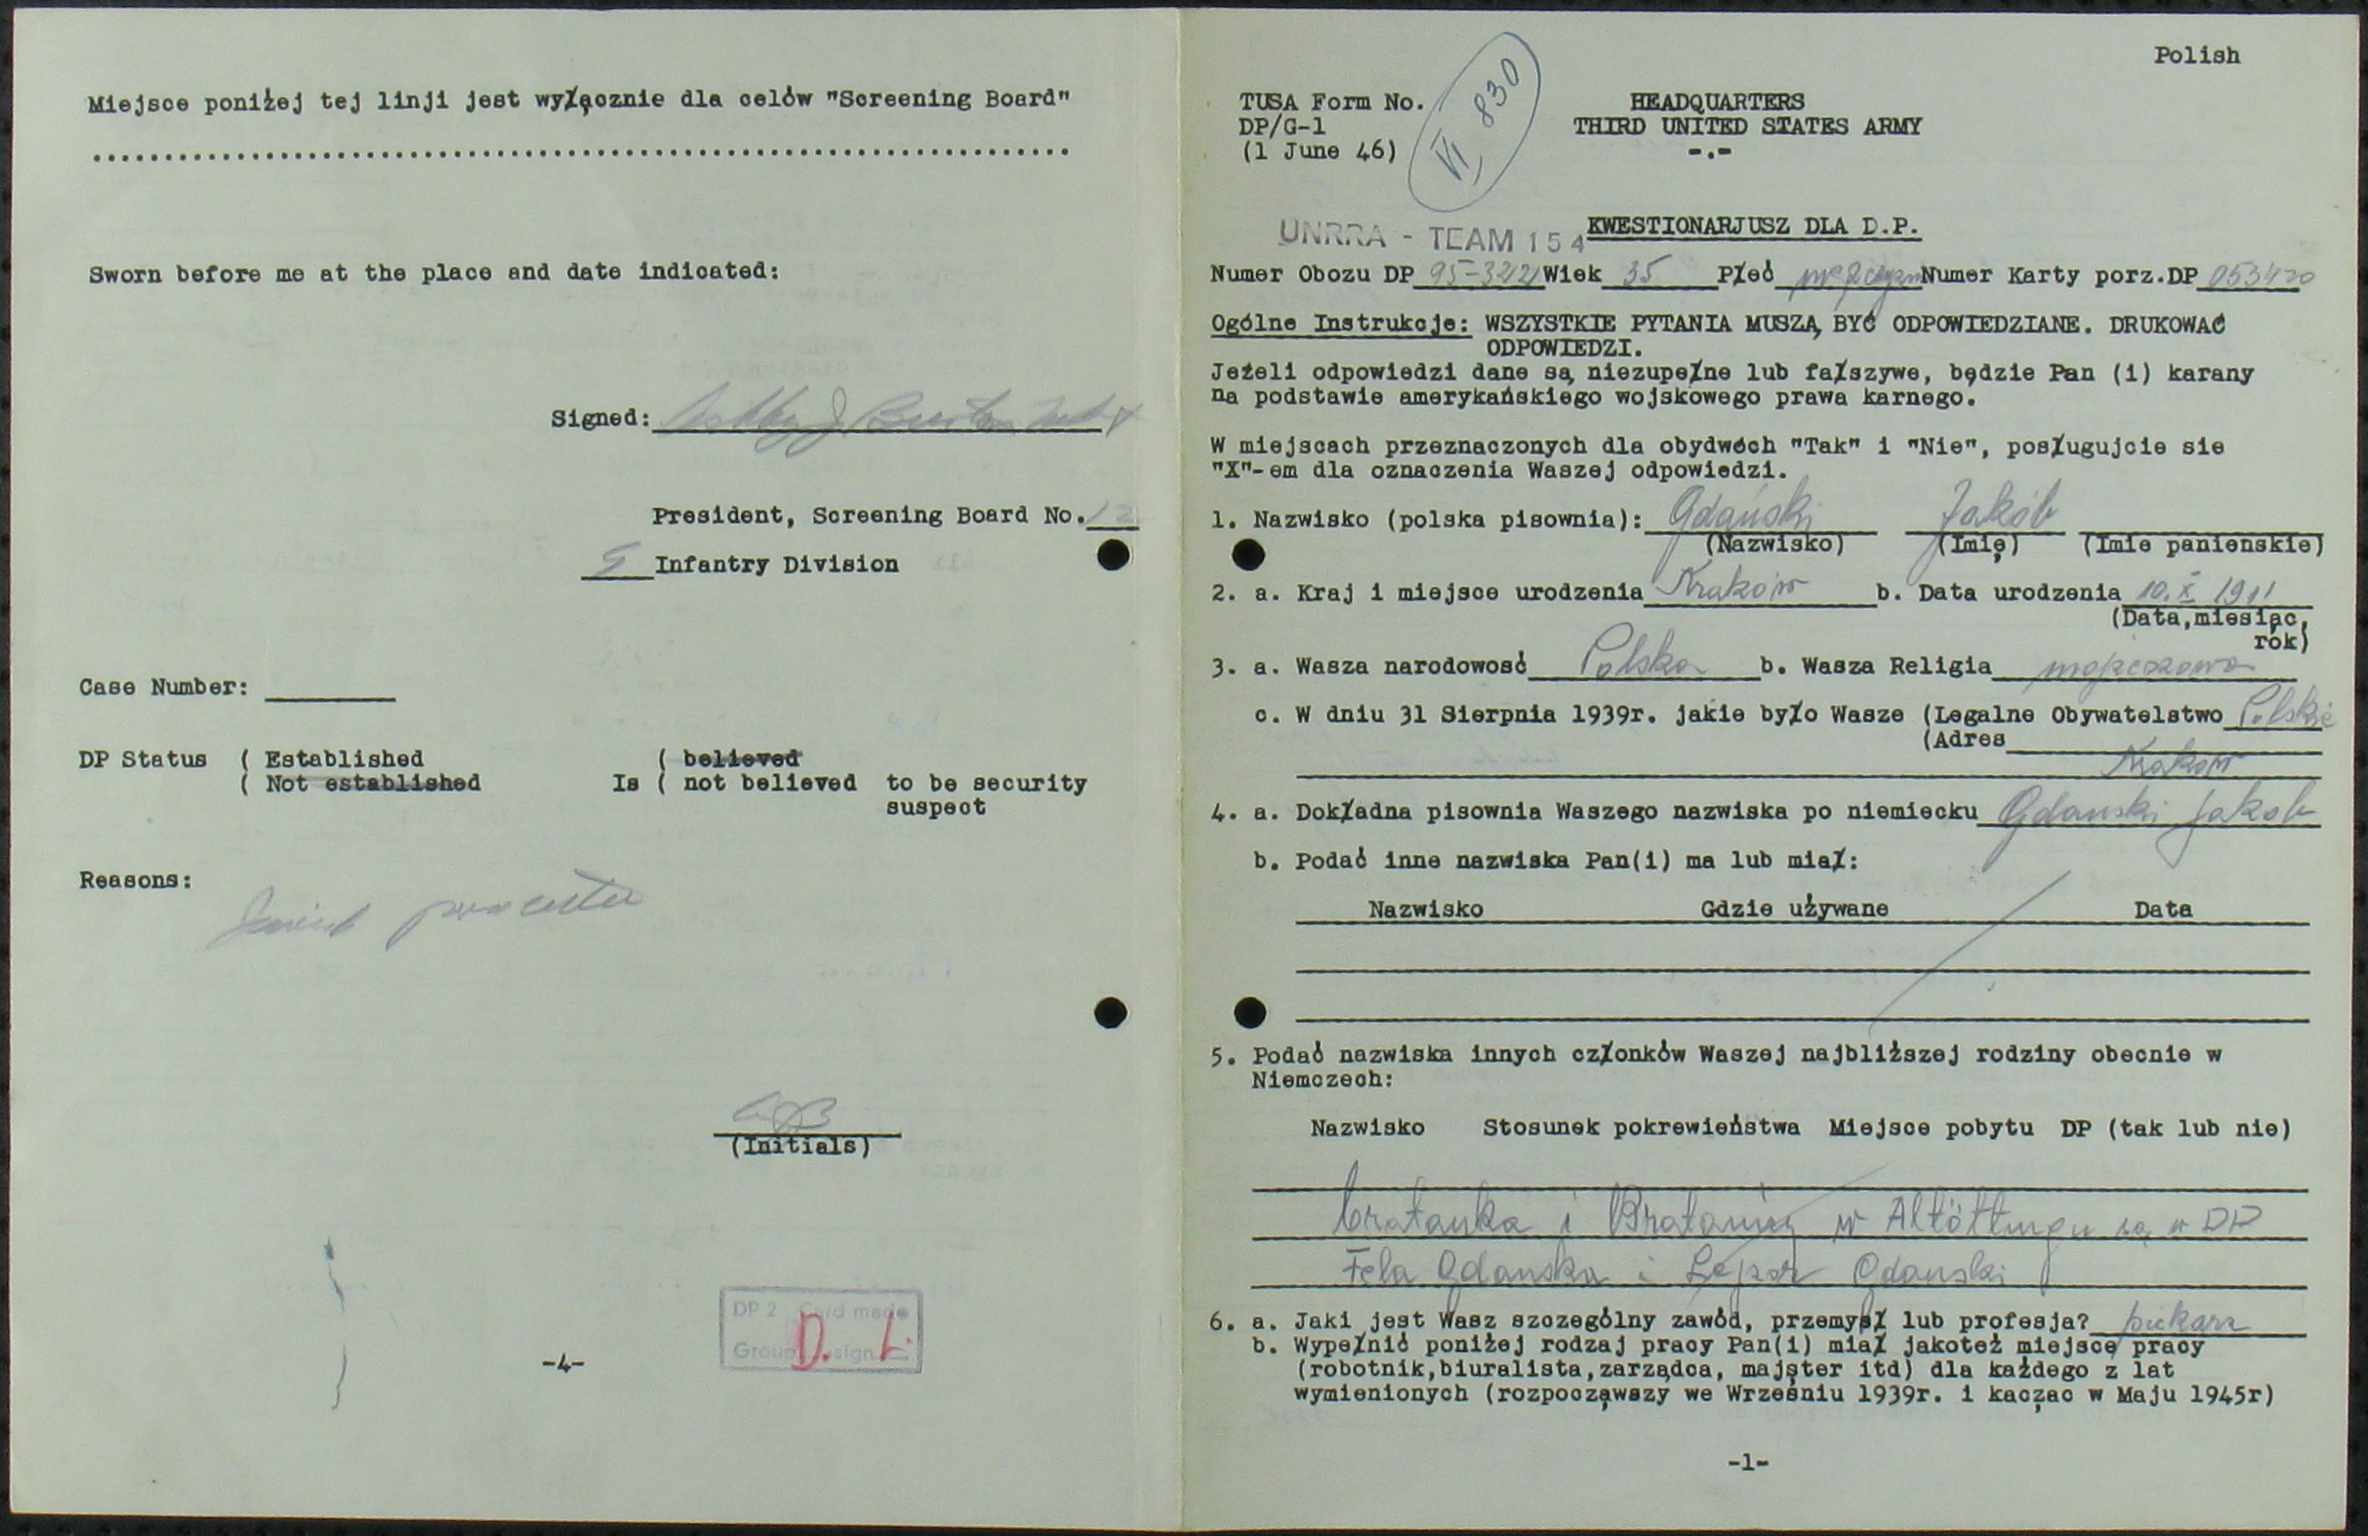 Miejsce poniżej tej linji jest wyłącznie dla celów "Screening Board"
Sworn before me at the place and date indicated:
Signed:
President, Screening Board No. 12
5 Infantry Division
Case Number:
DP Status ( Established ( believed
( Not established Is ( not believed to be security
suspect
Reasons:
(Initials)
DP 2 Card made
Group sign
D. L.
-4-
Polish
TUSA Form No. HEADQUARTERS
DP/G-1 THIRD UNITED STATES ARMY
(1 June 46) -.-
VI, 830
UNRRA - TEAM 154 KWESTIONARJUSZ DLA D.P.
Numer Obozu DP 95-322 Wiek 35 Płeć Numer Karty porz.DP 053420
Ogólne Instrukcje: WSZYSTKIE PYTANIA MUSZĄ BYĆ ODPOWIEDZIANE. DRUKOWAĆ
ODPOWIEDZI.
Jeżeli odpowiedzi dane są niezupełne lub fałszywe, będzie Pan (i) karany
na podstawie amerykańskiego wojskowego prawa karnego.
W miejscach przeznaczonych dla obydwóch "Tak" i "Nie", posługujcie sie
"X"-em dla oznaczenia Waszej odpowiedzi.
1. Nazwisko (polska pisownia): Gdański Jakób
(Nazwisko) (Imię) (Imie panienskie)
2. a. Kraj i miejsce urodzenia Kraków b. Data urodzenia 10.X 1911
(Data,miesiąc,
rok)
3. a. Wasza narodowosć Polska b. Wasza Religia mojżeszowa
c. W dniu 31 Sierpnia 1939r. jakie było Wasze (Legalne Obywatelstwo Polskie
(Adres
Kraków
4. a. Dokładna pisownia Waszego nazwiska po niemiecku Gdanski Jakob
b. Podać inne nazwiska Pan(i) ma lub miał:
Nazwisko Gdzie używane Data
5. Podać nazwiska innych członków Waszej najbliższej rodziny obecnie w
Niemczech:
Nazwisko Stosunek pokrewieństwa Miejsce pobytu DP (tak lub nie)
bratanka i Bratanicy w Altöttingu są w DP
Fela Gdanska i Lejzor Gdanski
6. a. Jaki jest Wasz szczególny zawód, przemysł lub profesja? piekarz
b. Wypełnić poniżej rodzaj pracy Pan(i) miał jakoteż miejsce pracy
(robotnik,biuralista,zarządca, majster itd) dla każdego z lat
wymienionych (rozpocząwszy we Wrześniu 1939r. i kacząc w Maju 1945r)
-1-